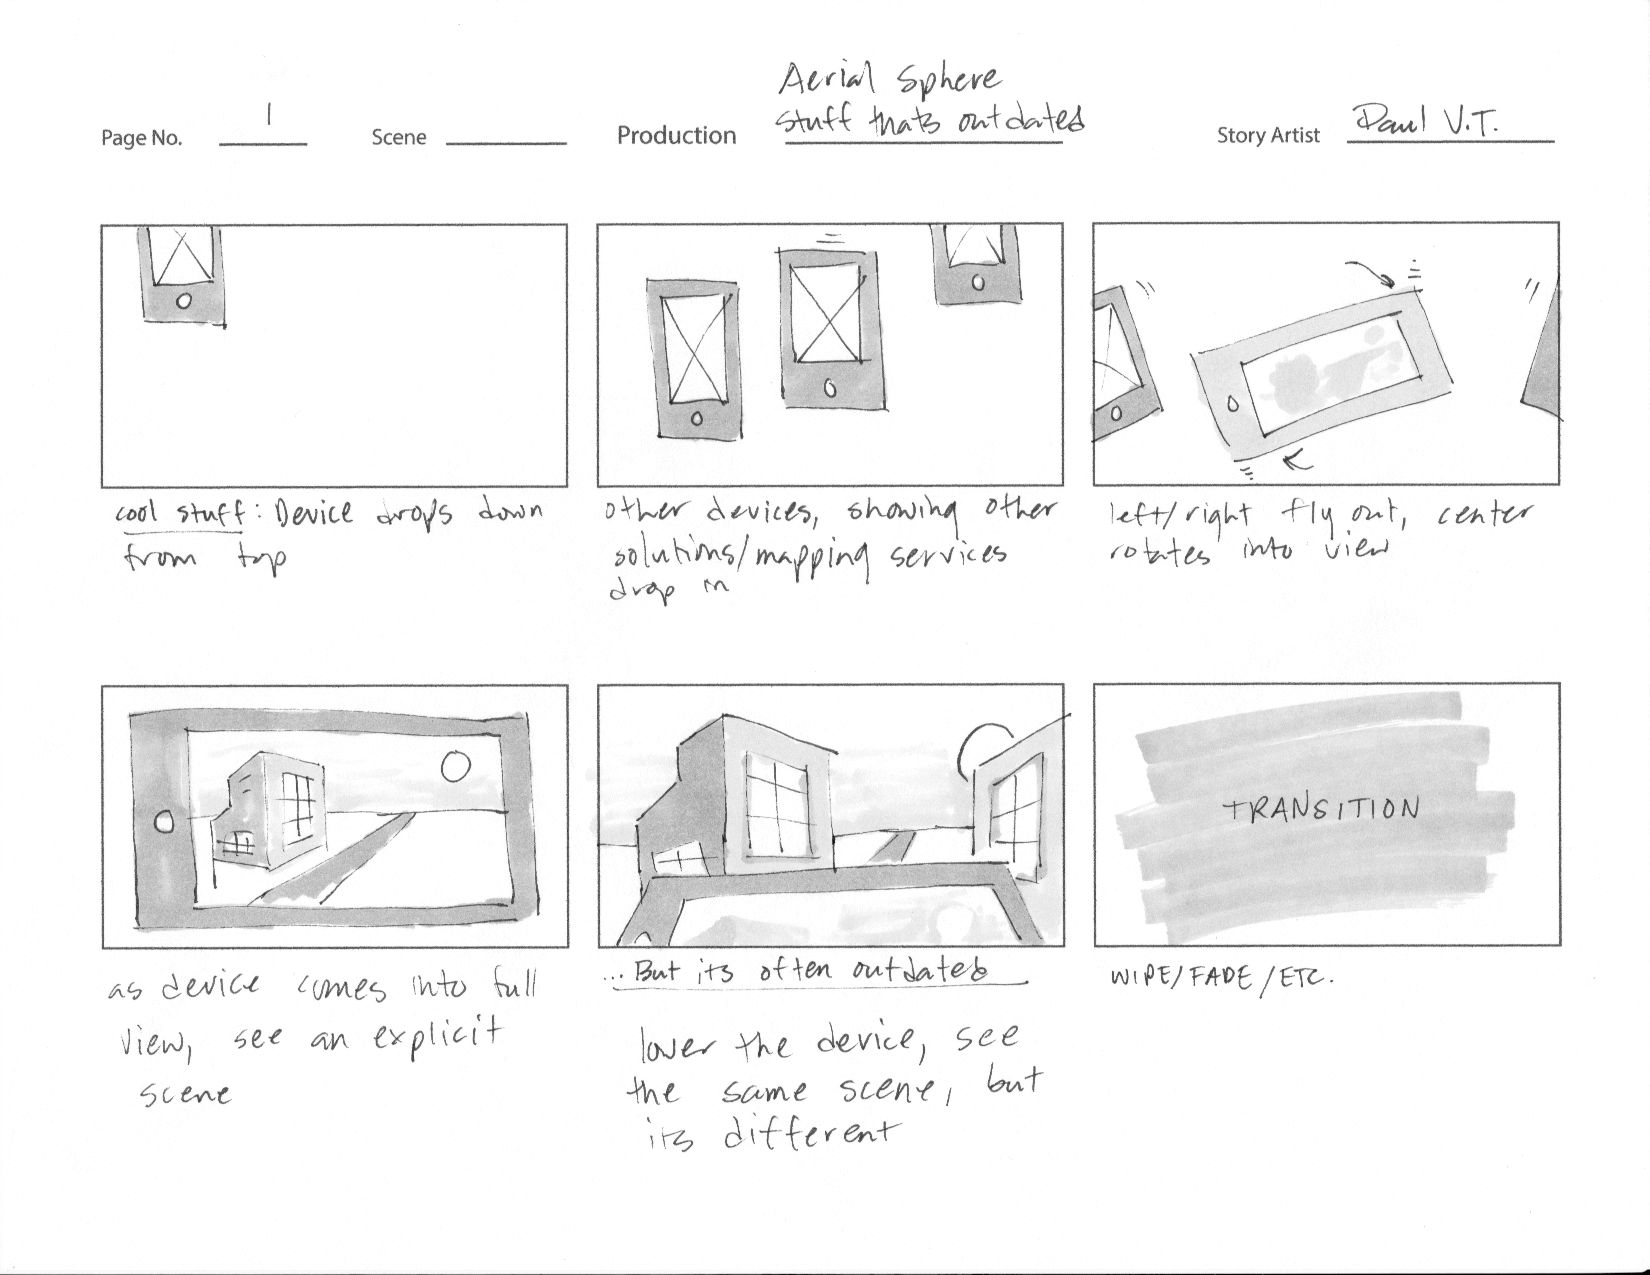 Aerial Sphere
stuff thats outdated
Page No. 1 Scene Production Story Artist Paul V.T.
cool stuff: Device drops down
from top
other devices, showing other
solutions/mapping services
drop in
left/right fly out, center
rotates into view
TRANSITION
as device comes into full
view, see an explicit
scene
...But its often outdated
lower the device, see
the same scene, but
its different
WIPE/FADE/ETC.